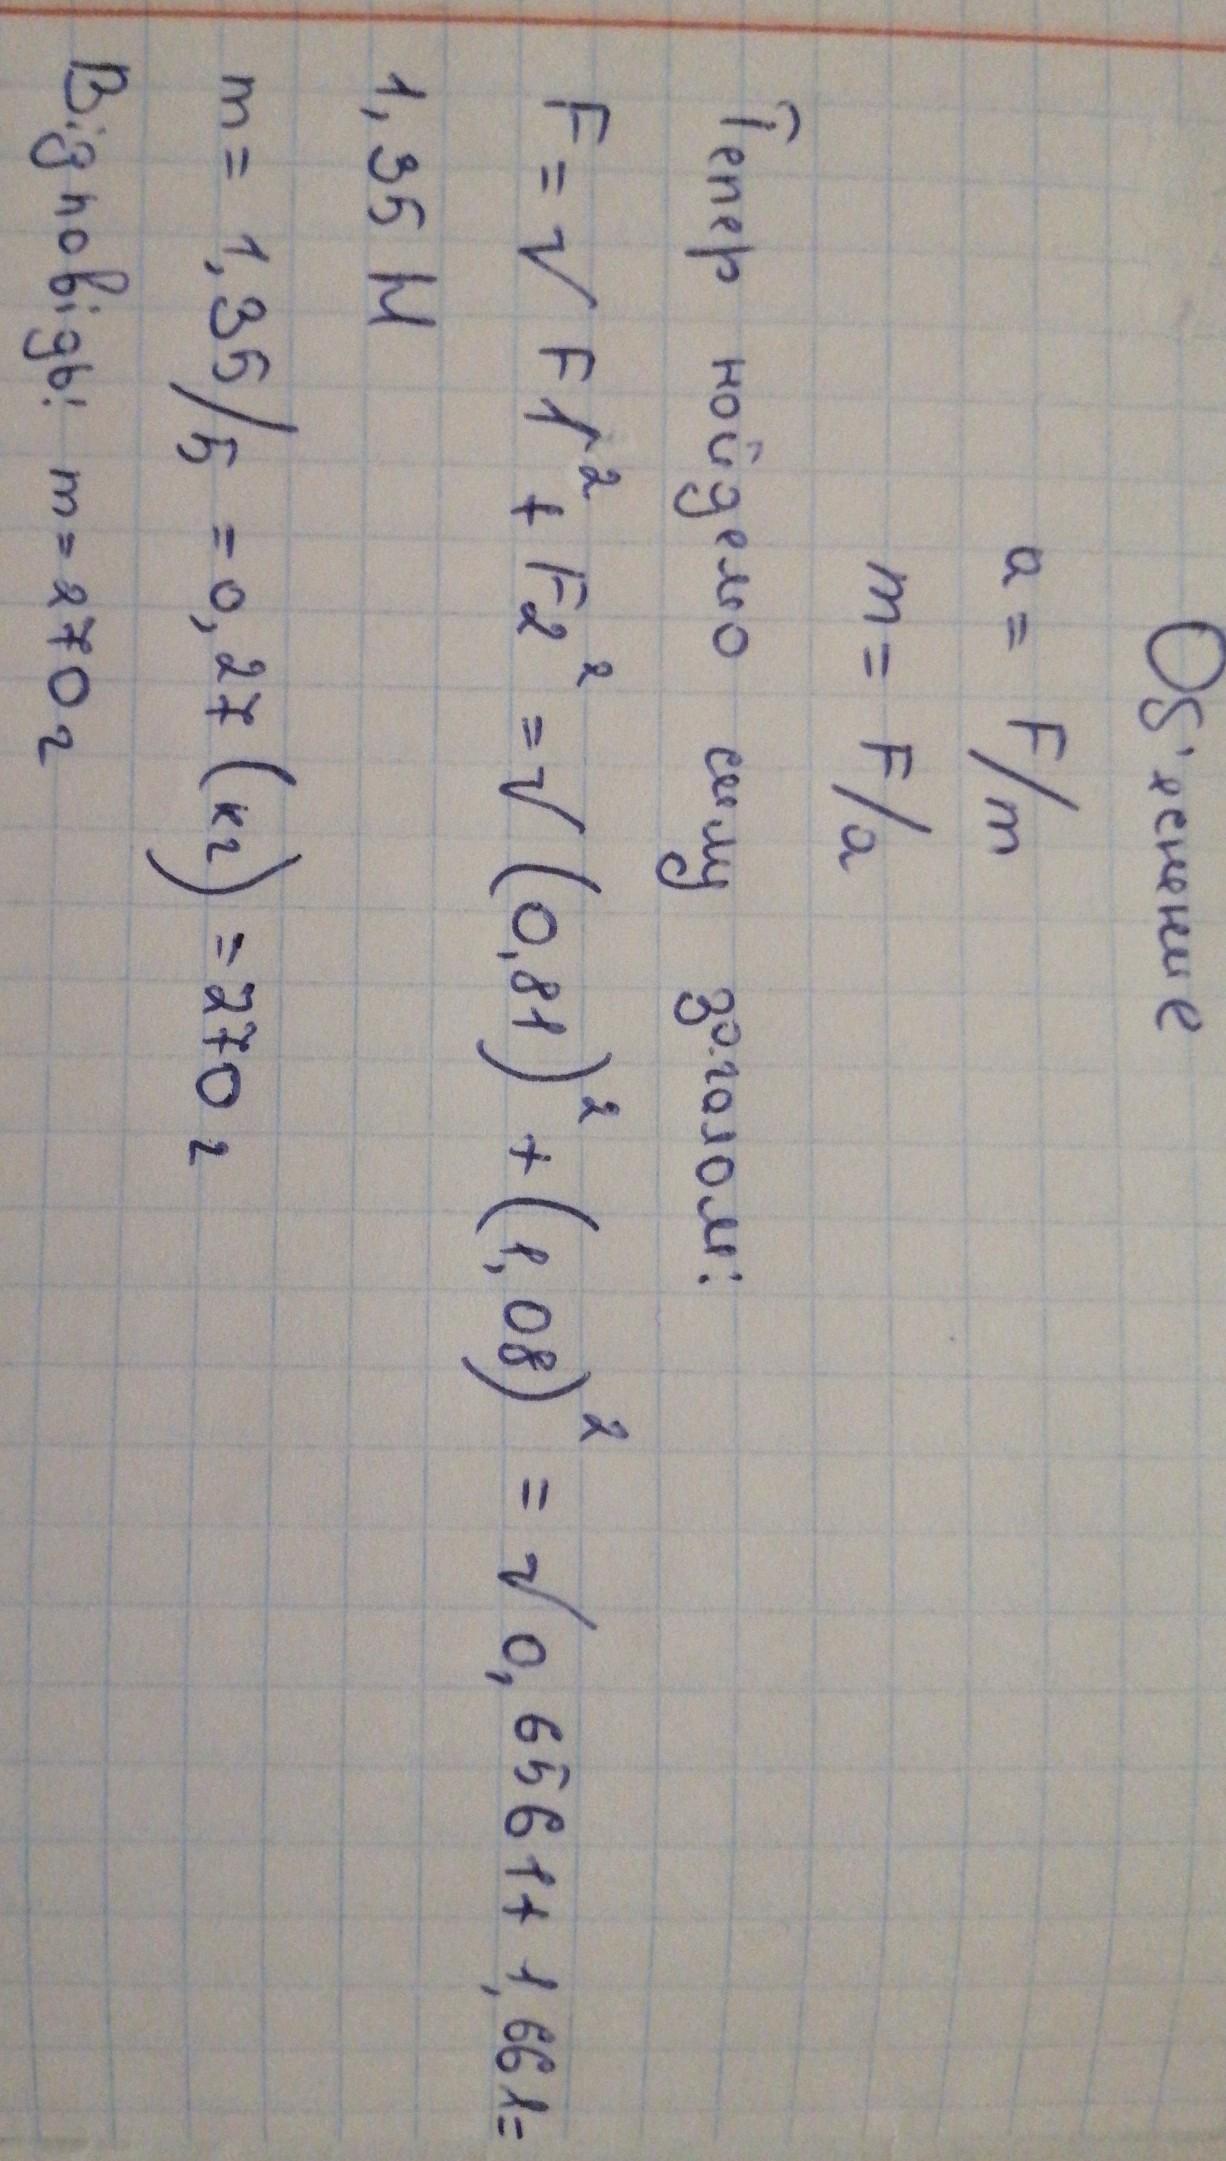 Об'єснение
a = F/m
m = F/a
Тепер найдемо силу загалом:
F = √ F1² + F2² = √ (0,81)² + (1,08)² = √ 0,6561 + 1,661 =
1,35 Н
m = 1,35/5 = 0,27 (кг) = 270 г
Відповідь: m = 270 г